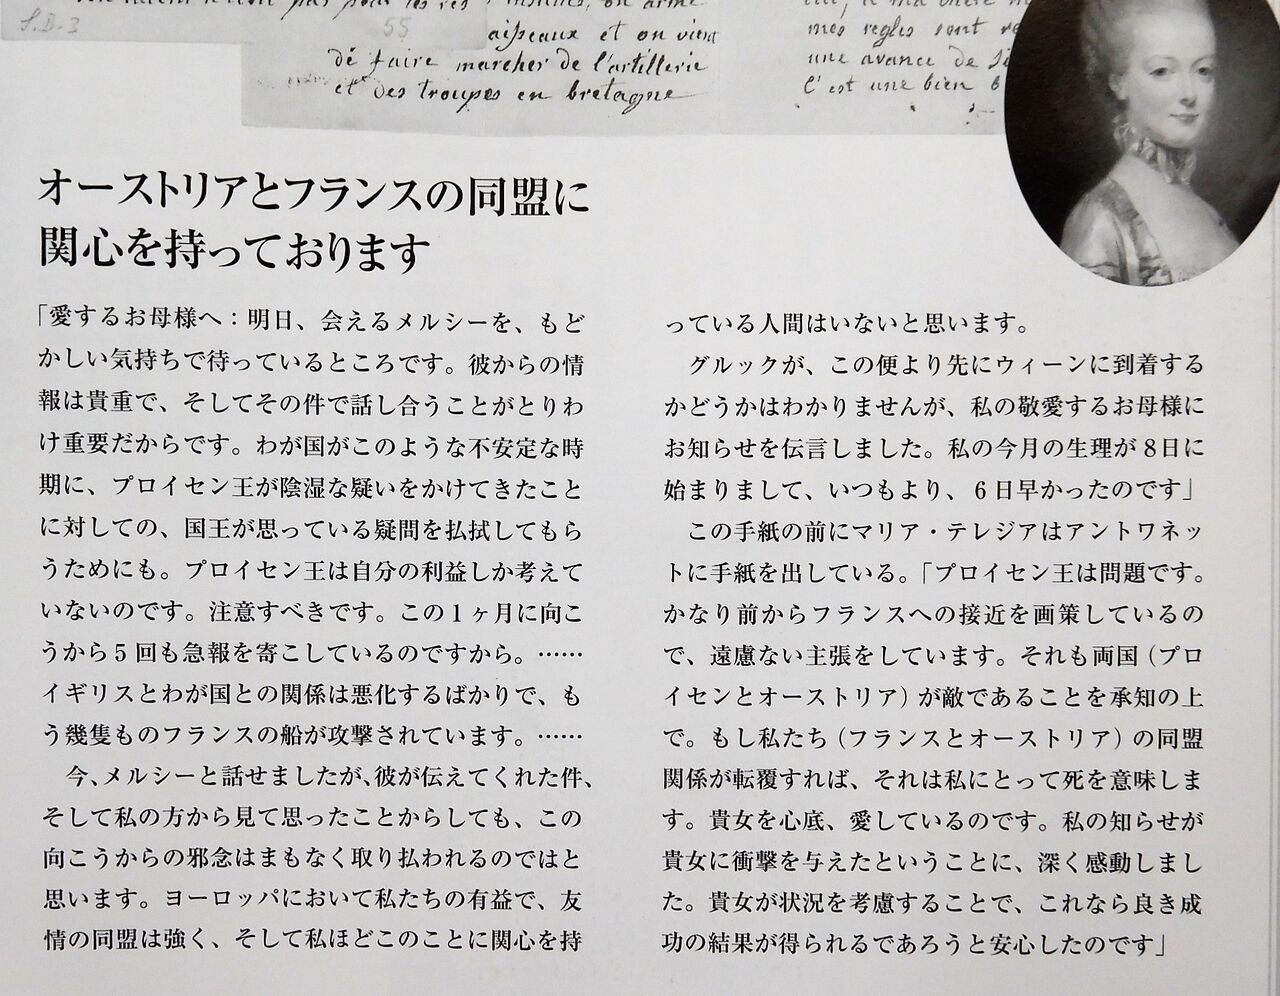 S.D.3
55
aisseaux et on vient
de faire marcher de l'artillerie
et des troupes en bretagne
mes regles sont
une avance de
C'est une bien
オーストリアとフランスの同盟に
関心を持っております
「愛するお母様へ：明日、会えるメルシーを、もど
かしい気持ちで待っているところです。彼からの情
報は貴重で、そしてその件で話し合うことがとりわ
け重要だからです。わが国がこのような不安定な時
期に、プロイセン王が陰湿な疑いをかけてきたこと
に対しての、国王が思っている疑問を払拭してもら
うためにも。プロイセン王は自分の利益しか考えて
いないのです。注意すべきです。この1ヶ月に向こ
うから5回も急報を寄こしているのですから。……
イギリスとわが国との関係は悪化するばかりで、も
う幾隻ものフランスの船が攻撃されています。……
今、メルシーと話せましたが、彼が伝えてくれた件、
そして私の方から見て思ったことからしても、この
向こうからの邪念はまもなく取り払われるのではと
思います。ヨーロッパにおいて私たちの有益で、友
情の同盟は強く、そして私ほどこのことに関心を持
っている人間はいないと思います。
グルックが、この便より先にウィーンに到着する
かどうかはわかりませんが、私の敬愛するお母様に
お知らせを伝言しました。私の今月の生理が8日に
始まりまして、いつもより、6日早かったのです」
この手紙の前にマリア・テレジアはアントワネッ
トに手紙を出している。「プロイセン王は問題です。
かなり前からフランスへの接近を画策しているの
で、遠慮ない主張をしています。それも両国（プロ
イセンとオーストリア）が敵であることを承知の上
で。もし私たち（フランスとオーストリア）の同盟
関係が転覆すれば、それは私にとって死を意味しま
す。貴女を心底、愛しているのです。私の知らせが
貴女に衝撃を与えたということに、深く感動しまし
た。貴女が状況を考慮することで、これなら良き成
功の結果が得られるであろうと安心したのです」